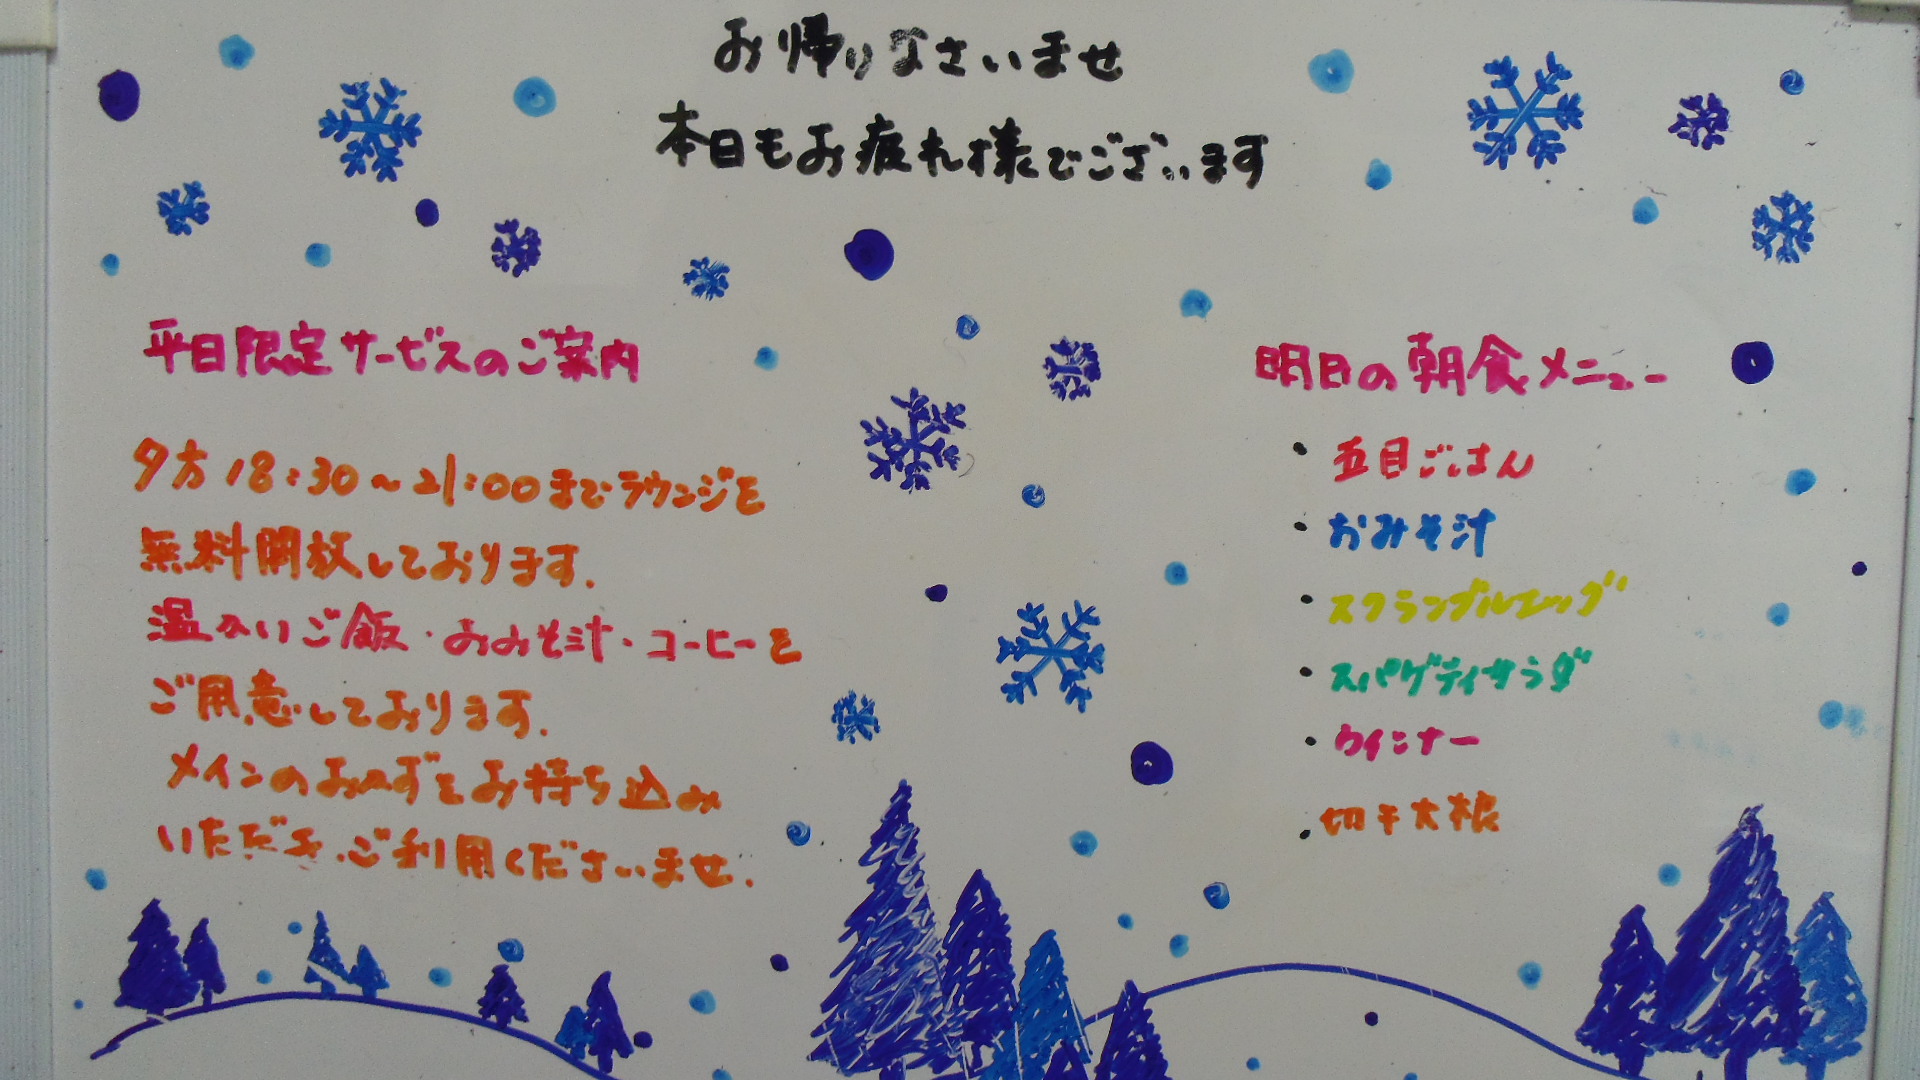 お帰りなさいませ
本日もお疲れ様でございます
平日限定サービスのご案内
夕方18:30~21:00までラウンジを
無料開放しております.
温かいご飯・おみそ汁・コーヒーを
ご用意しております.
メインのおかずをお持ち込み
いただき、ご利用くださいませ.
明日の朝食メニュー
・五目ごはん
・おみそ汁
・スクランブルエッグ
・スパゲティサラダ
・ウインナー
・切干大根